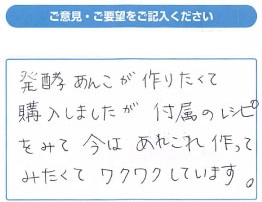 ご意見・ご要望をご記入ください
発酵あんこが作りたくて
購入しましたが 付属のレシピ
をみて 今は あれこれ 作って
みたくて ワクワクしています。